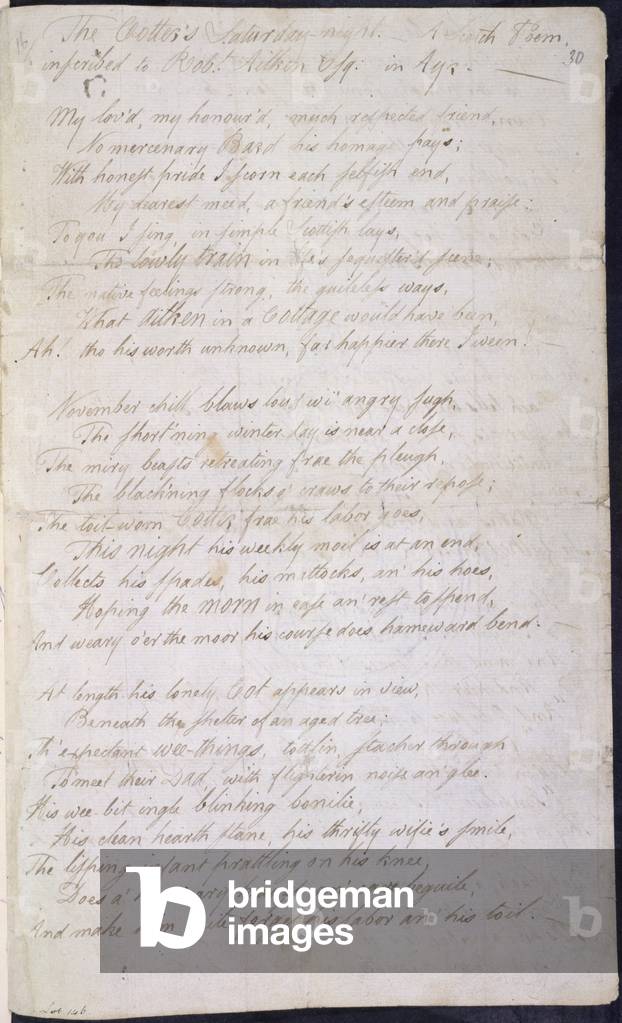 The Cotter's Saturday-night. — A Scotch Poem,
inscribed to Robt. Aitken Esq: in Ayr. —
30
My lov'd, my honour'd, much respected friend,
No mercenary Bard his homage pays;
With honest pride I scorn each selfish end,
My dearest meed, a friend's esteem and praise:
To you I sing, in simple Scottish lays,
The lowly train in life's sequester'd scene;
The native feelings strong, the guileless ways,
What Aitken in a Cottage would have been,
Ah! tho his worth unknown, far happier there I ween! —
November chill blaws loud wi' angry sugh,
The short'ning winter day is near a close,
The miry beasts retreating frae the pleugh,
The black'ning flocks o' craws to their repose;
The toil-worn Cotter frae his labor goes,
This night his weekly moil is at an end,
Collects his spades, his mattocks, an' his hoes,
Hoping the morn in ease an' rest to spend,
And weary o'er the moor his course does hameward bend. —
At length his lonely Cot appears in view,
Beneath the shelter of an aged tree;
Th' expectant wee-things, todlin, stacher through
To meet their Dad, with flighterin noise an' glee.
His wee-bit ingle blinking bonilie,
His clean hearth stane, his thrifty wifie's smile,
The lisping infant prattling on his knee,
Does a' beguile,
And make him forget his labor an' his toil. —
Lot 146
bridgeman
images